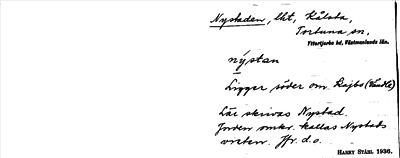 Nystaden, lht, Kålsta,
Tortuna sn,
Yttertjurbo hd, Västmanlands län.
nýstan
Ligger söder om Rajbo (Vändle)
Lär skrivas Nystad.
Jorden omkr. kallas Nystads
vreten. Jfr. d.o.
HARRY STÅHL 1936.